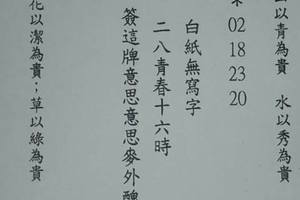 以青為貴 水以秀為貴
02
18
23
20
白紙無寫字
二八青春十六時
簽這牌意思意思麥外醜
花以潔為貴；草以綠為貴